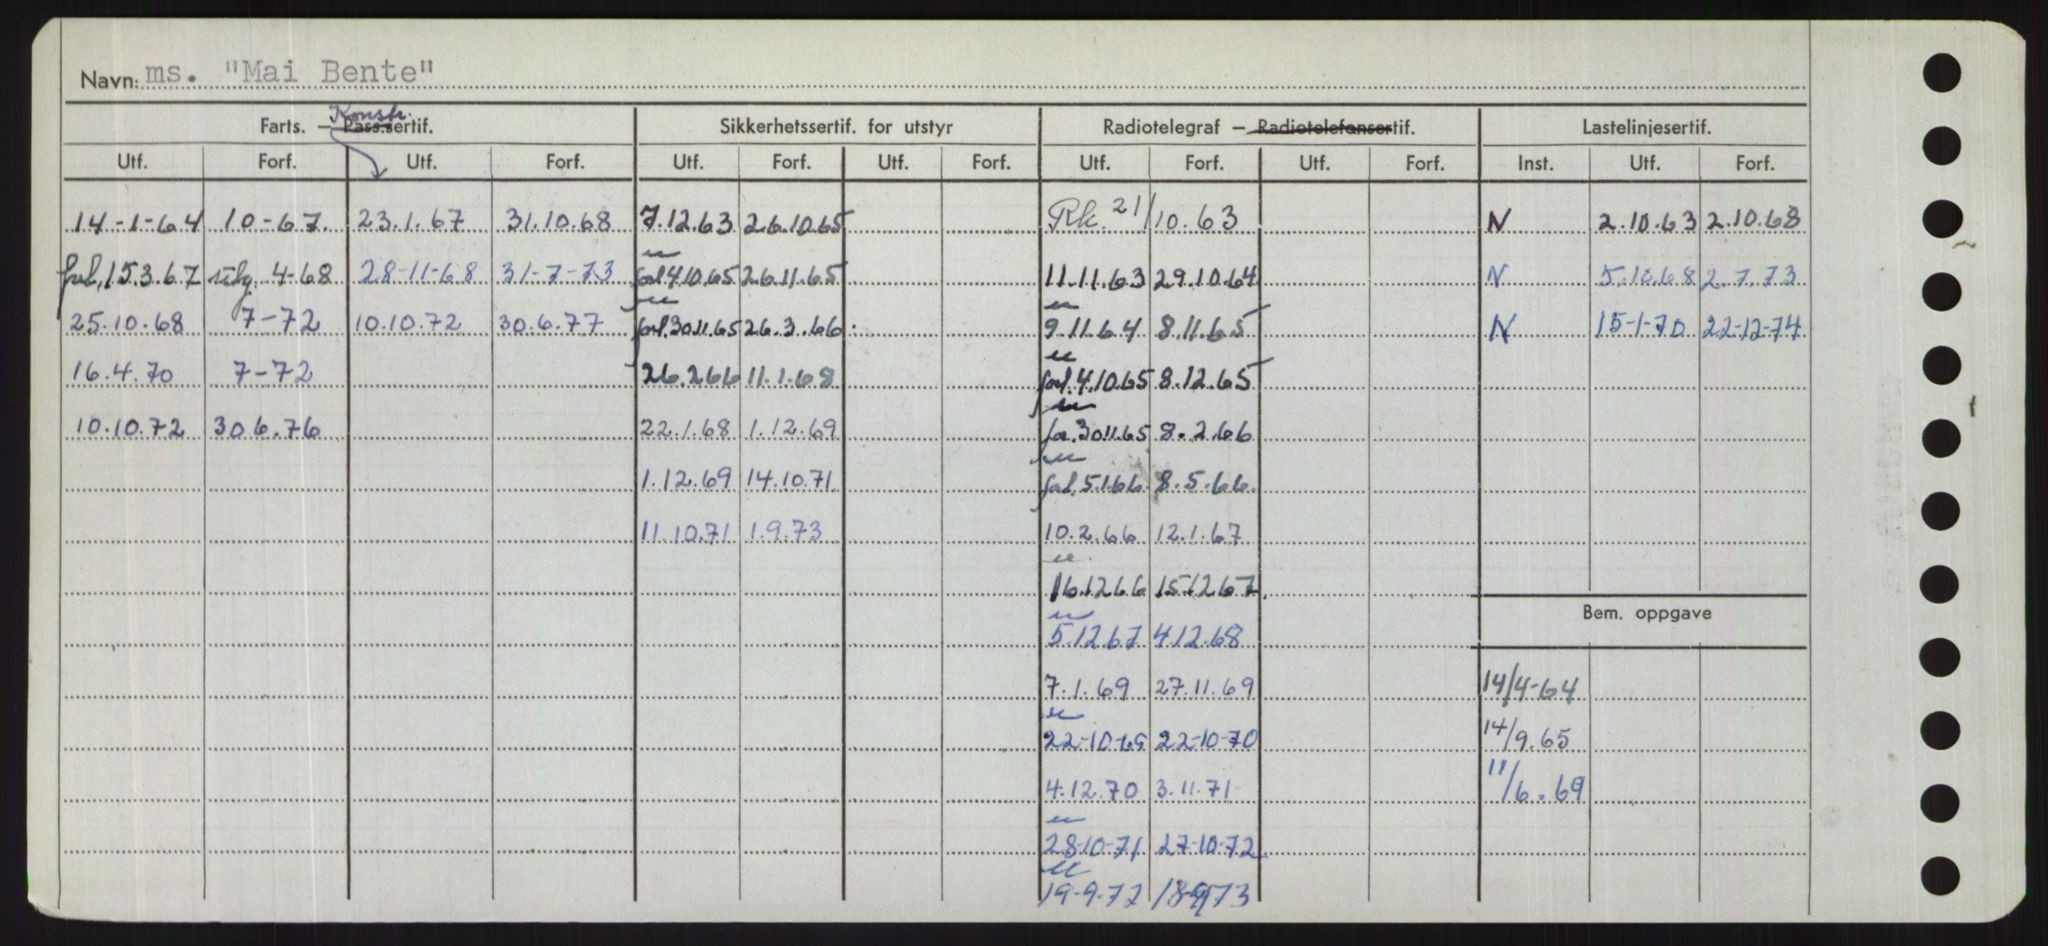 Navn: ms. "Mai Bente"
Konstr.
Farts. — Pass.sertif. Sikkerhetssertif. for utstyr Radiotelegraf — Radiotelefonsertif. Lastelinjesertif.
Utf. Forf. Utf. Forf. Utf. Forf. Utf. Forf. Utf. Forf. Utf. Forf. Inst. Utf. Forf.
14-1-64 10-67. 23.1.67 31.10.68 7.12.63 26.10.65 Rk. 21/10.63 N 2.10.63 2.10.68
15.3.67 4-68 28-11-68 31-7-73 4.10.65 26.11.65 11.11.63 29.10.64 N 5.10.68 2.7.73
25.10.68 7-72 10.10.72 30.6.77 30.11.65 26.3.66. 9.11.64 8.11.65 N 15-1-70 22-12-74
16.4.70 7-72 26.2.66 11.1.68 4.10.65 8.12.65
10.10.72 30.6.76 22.1.68 1.12.69 30.11.65 8.2.66
1.12.69 14.10.71 5.1.66 8.5.66.
11.10.71 1.9.73 10.2.66 12.1.67
16.12.66 15.12.67.
Bem. oppgave
5.12.67 4.12.68
7.1.69 27.11.69 14/4-64
22-10-69 22-10-70 14/9.65
4.12.70 3.11.71 11/6.69
28-10-71 27-10-72
19-9-72 18-9-73